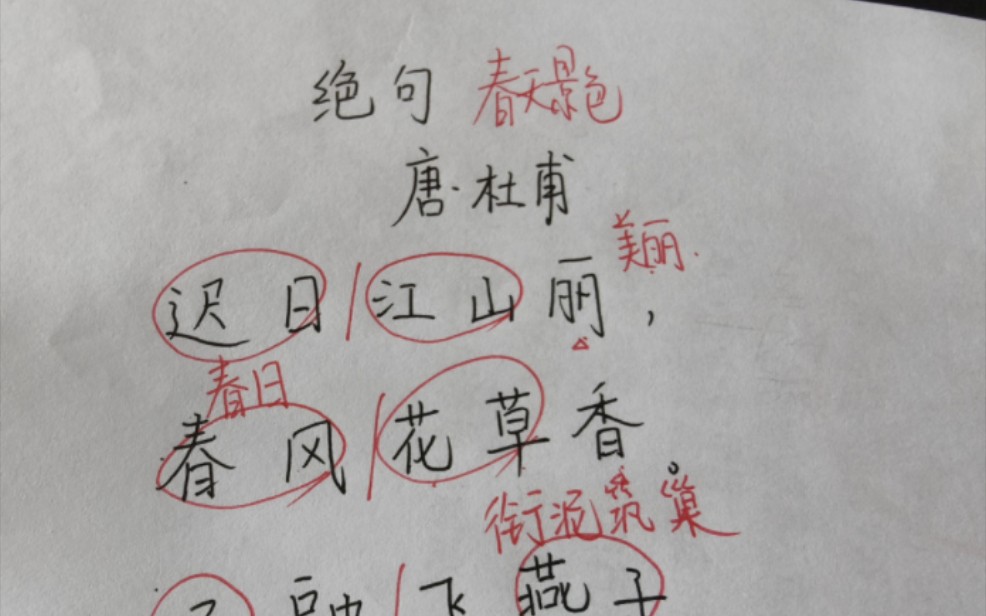 绝句 春天景色
唐·杜甫
美丽.
迟日/江山丽，
春日
春风/花草香。
衔泥筑巢
/飞燕子